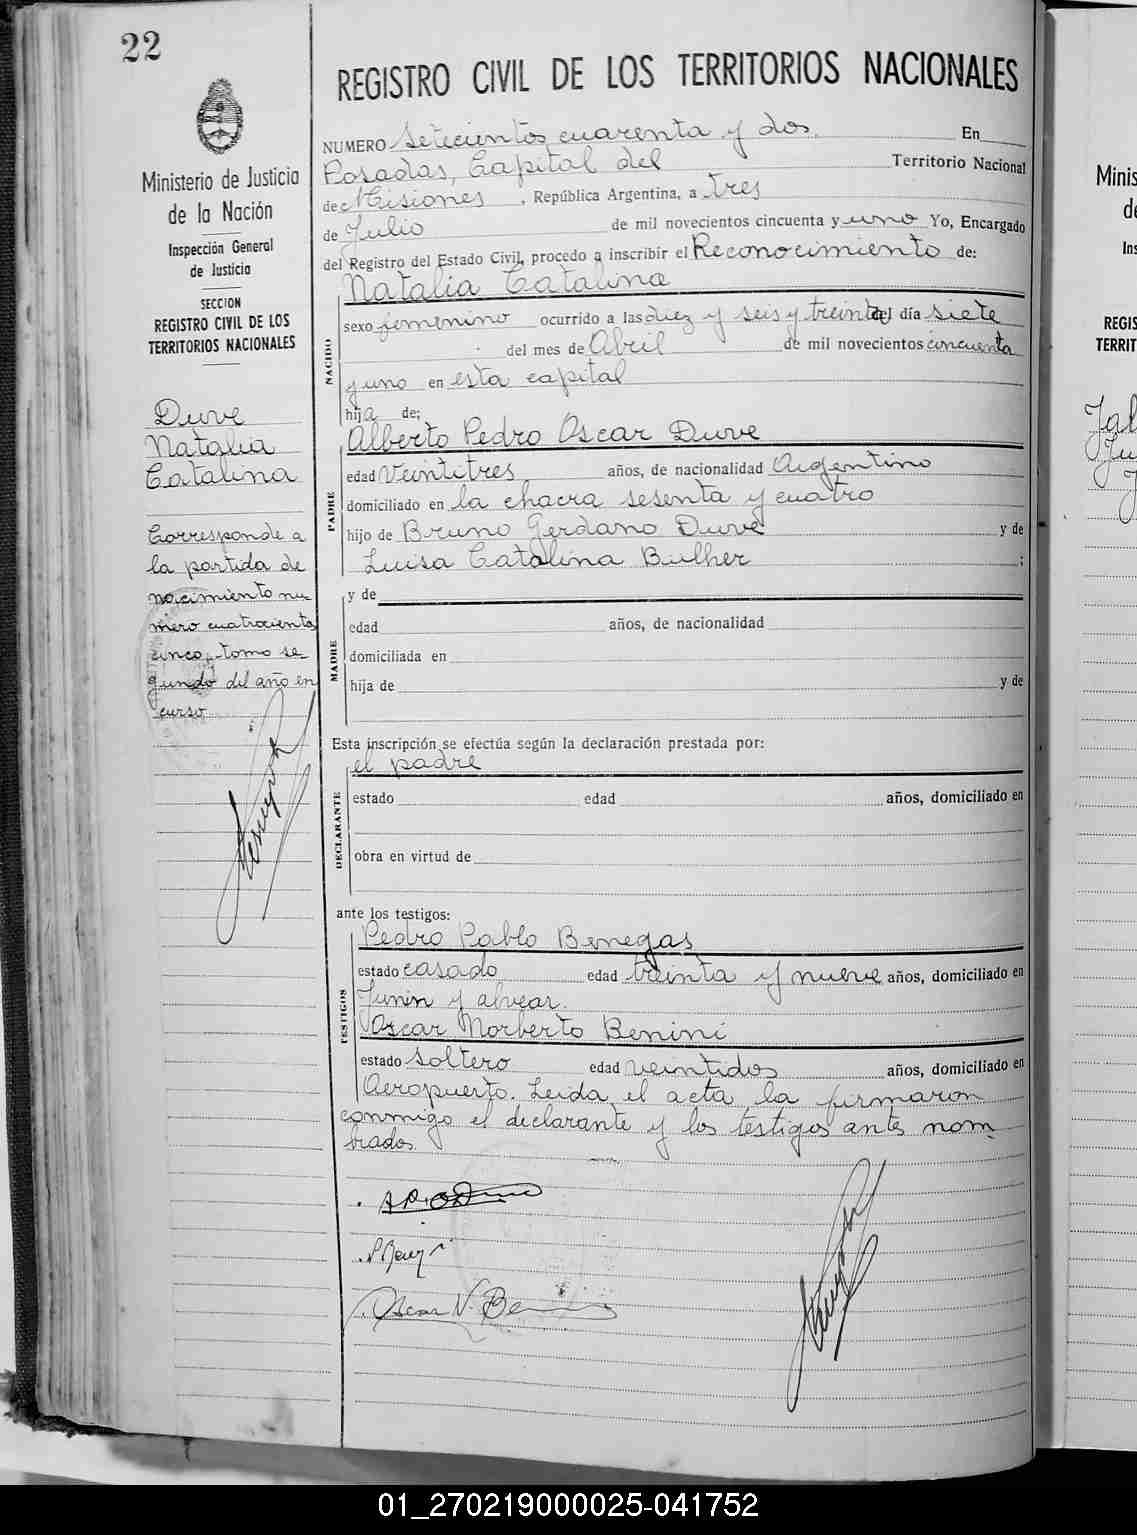 22
Ministerio de Justicia
de la Nación
Inspección General
de Justicia
SECCION
REGISTRO CIVIL DE LOS
TERRITORIOS NACIONALES
Duve
Natalia
Catalina
Corresponde a
la partida de
nacimiento nu-
mero cuatrocientos
cinco, tomo se-
gundo del año en
curso
REGISTRO CIVIL DE LOS TERRITORIOS NACIONALES
NUMERO Setecientos cuarenta y dos. En
Posadas, Capital del Territorio Nacional
de Misiones, República Argentina, a tres
de Julio de mil novecientos cincuenta y uno Yo, Encargado
del Registro del Estado Civil, procedo a inscribir el Reconocimiento de:
NACIDO
Natalia Catalina
sexo femenino ocurrido a las diez y seis y treinta del día siete
del mes de Abril de mil novecientos cincuenta
y uno en esta capital
hija de:
PADRE
Alberto Pedro Oscar Duve
edad Veintitres años, de nacionalidad Argentino
domiciliado en la chacra sesenta y cuatro
hijo de Bruno Gerdano Duve y de
Luisa Catalina Bulher ;
MADRE
y de
edad años, de nacionalidad
domiciliada en
hija de y de
Esta inscripción se efectúa según la declaración prestada por:
DECLARANTE
el padre
estado edad años, domiciliado en
obra en virtud de
ante los testigos:
TESTIGOS
Pedro Pablo Benegas
estado casado edad treinta y nueve años, domiciliado en
Junin y alvear.
Oscar Norberto Benini
estado soltero edad veintidos años, domiciliado en
Aeropuerto. Leida el acta la firmaron
conmigo el declarante y los testigos antes nom
brados.
Oscar N. Benini
Minis
de
Ins
REGIS
TERRIT
01_270219000025-041752